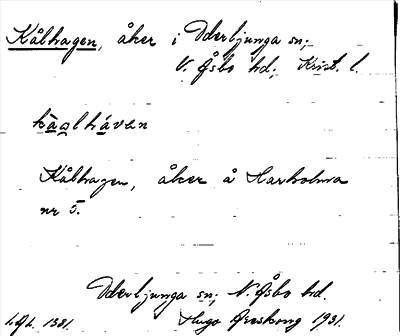 Kålhagen, åker i Oderljunga sn;
N. Åsbo hd; Krist. l.
kàɑlhá̀ven
Kålhagen, åker å Harholma
nr 5.
Oderljunga sn; N. Åsbo hd.
Hugo Areskoug 1931.